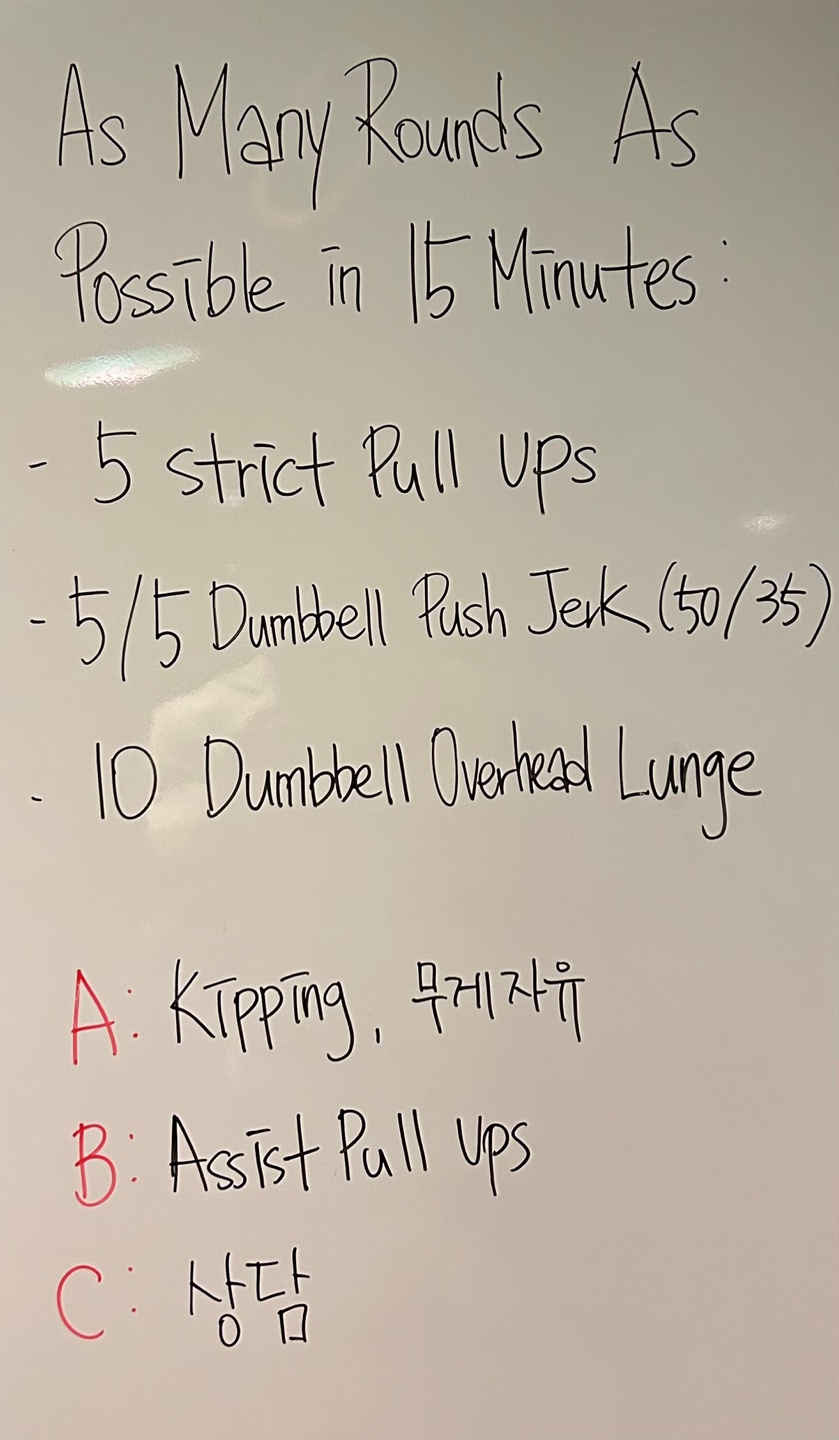 As Many Rounds As
Possible in 15 Minutes:
- 5 strict Pull ups
- 5/5 Dumbbell Push Jerk (50/35)
- 10 Dumbbell Overhead Lunge
A: Kipping, 무게자유
B: Assist Pull ups
C: 상담